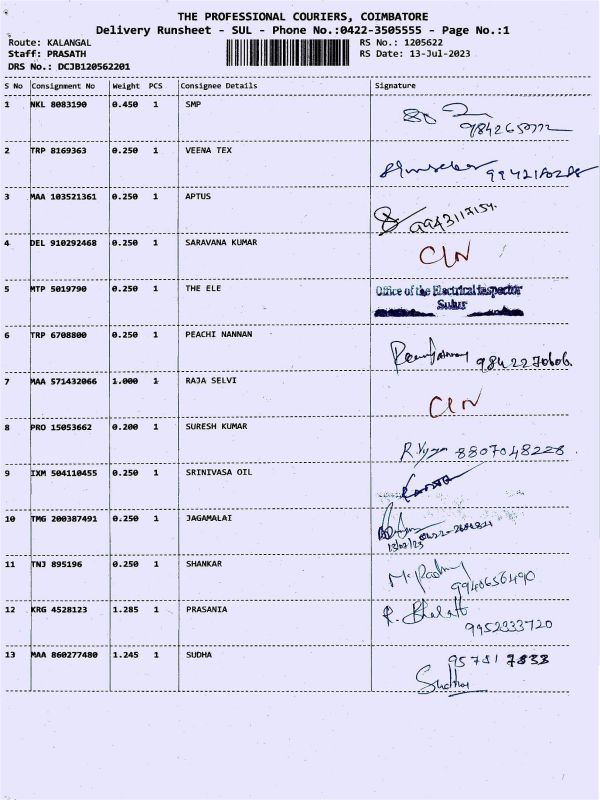 THE PROFESSIONAL COURIERS, COIMBATORE
Delivery Runsheet - SUL - Phone No.:0422-3505555 - Page No.:1
Route: KALANGAL RS No.: 1205622
Staff: PRASATH RS Date: 13-Jul-2023
DRS No.: DCJB120562201
S No Consignment No Weight PCS Consignee Details Signature
1 NKL 8083190 0.450 1 SMP
2 TRP 8169363 0.250 1 VEENA TEX
3 MAA 103521361 0.250 1 APTUS
9943117154.
4 DEL 910292468 0.250 1 SARAVANA KUMAR
5 MTP 5019790 0.250 1 THE ELE Office of the Electrical Inspector
Sulur
6 TRP 6708800 0.250 1 PEACHI NANNAN
9842270606.
7 MAA 571432066 1.000 1 RAJA SELVI
8 PRO 15053662 0.200 1 SURESH KUMAR
8807048228.
9 IXM 504110455 0.250 1 SRINIVASA OIL
10 TMG 200387491 0.250 1 JAGAMALAI
11 TNJ 895196 0.250 1 SHANKAR
9940656490
12 KRG 4528123 1.285 1 PRASANIA
9952333720
13 MAA 860277480 1.245 1 SUDHA 957817833
Sudha
PRASATH